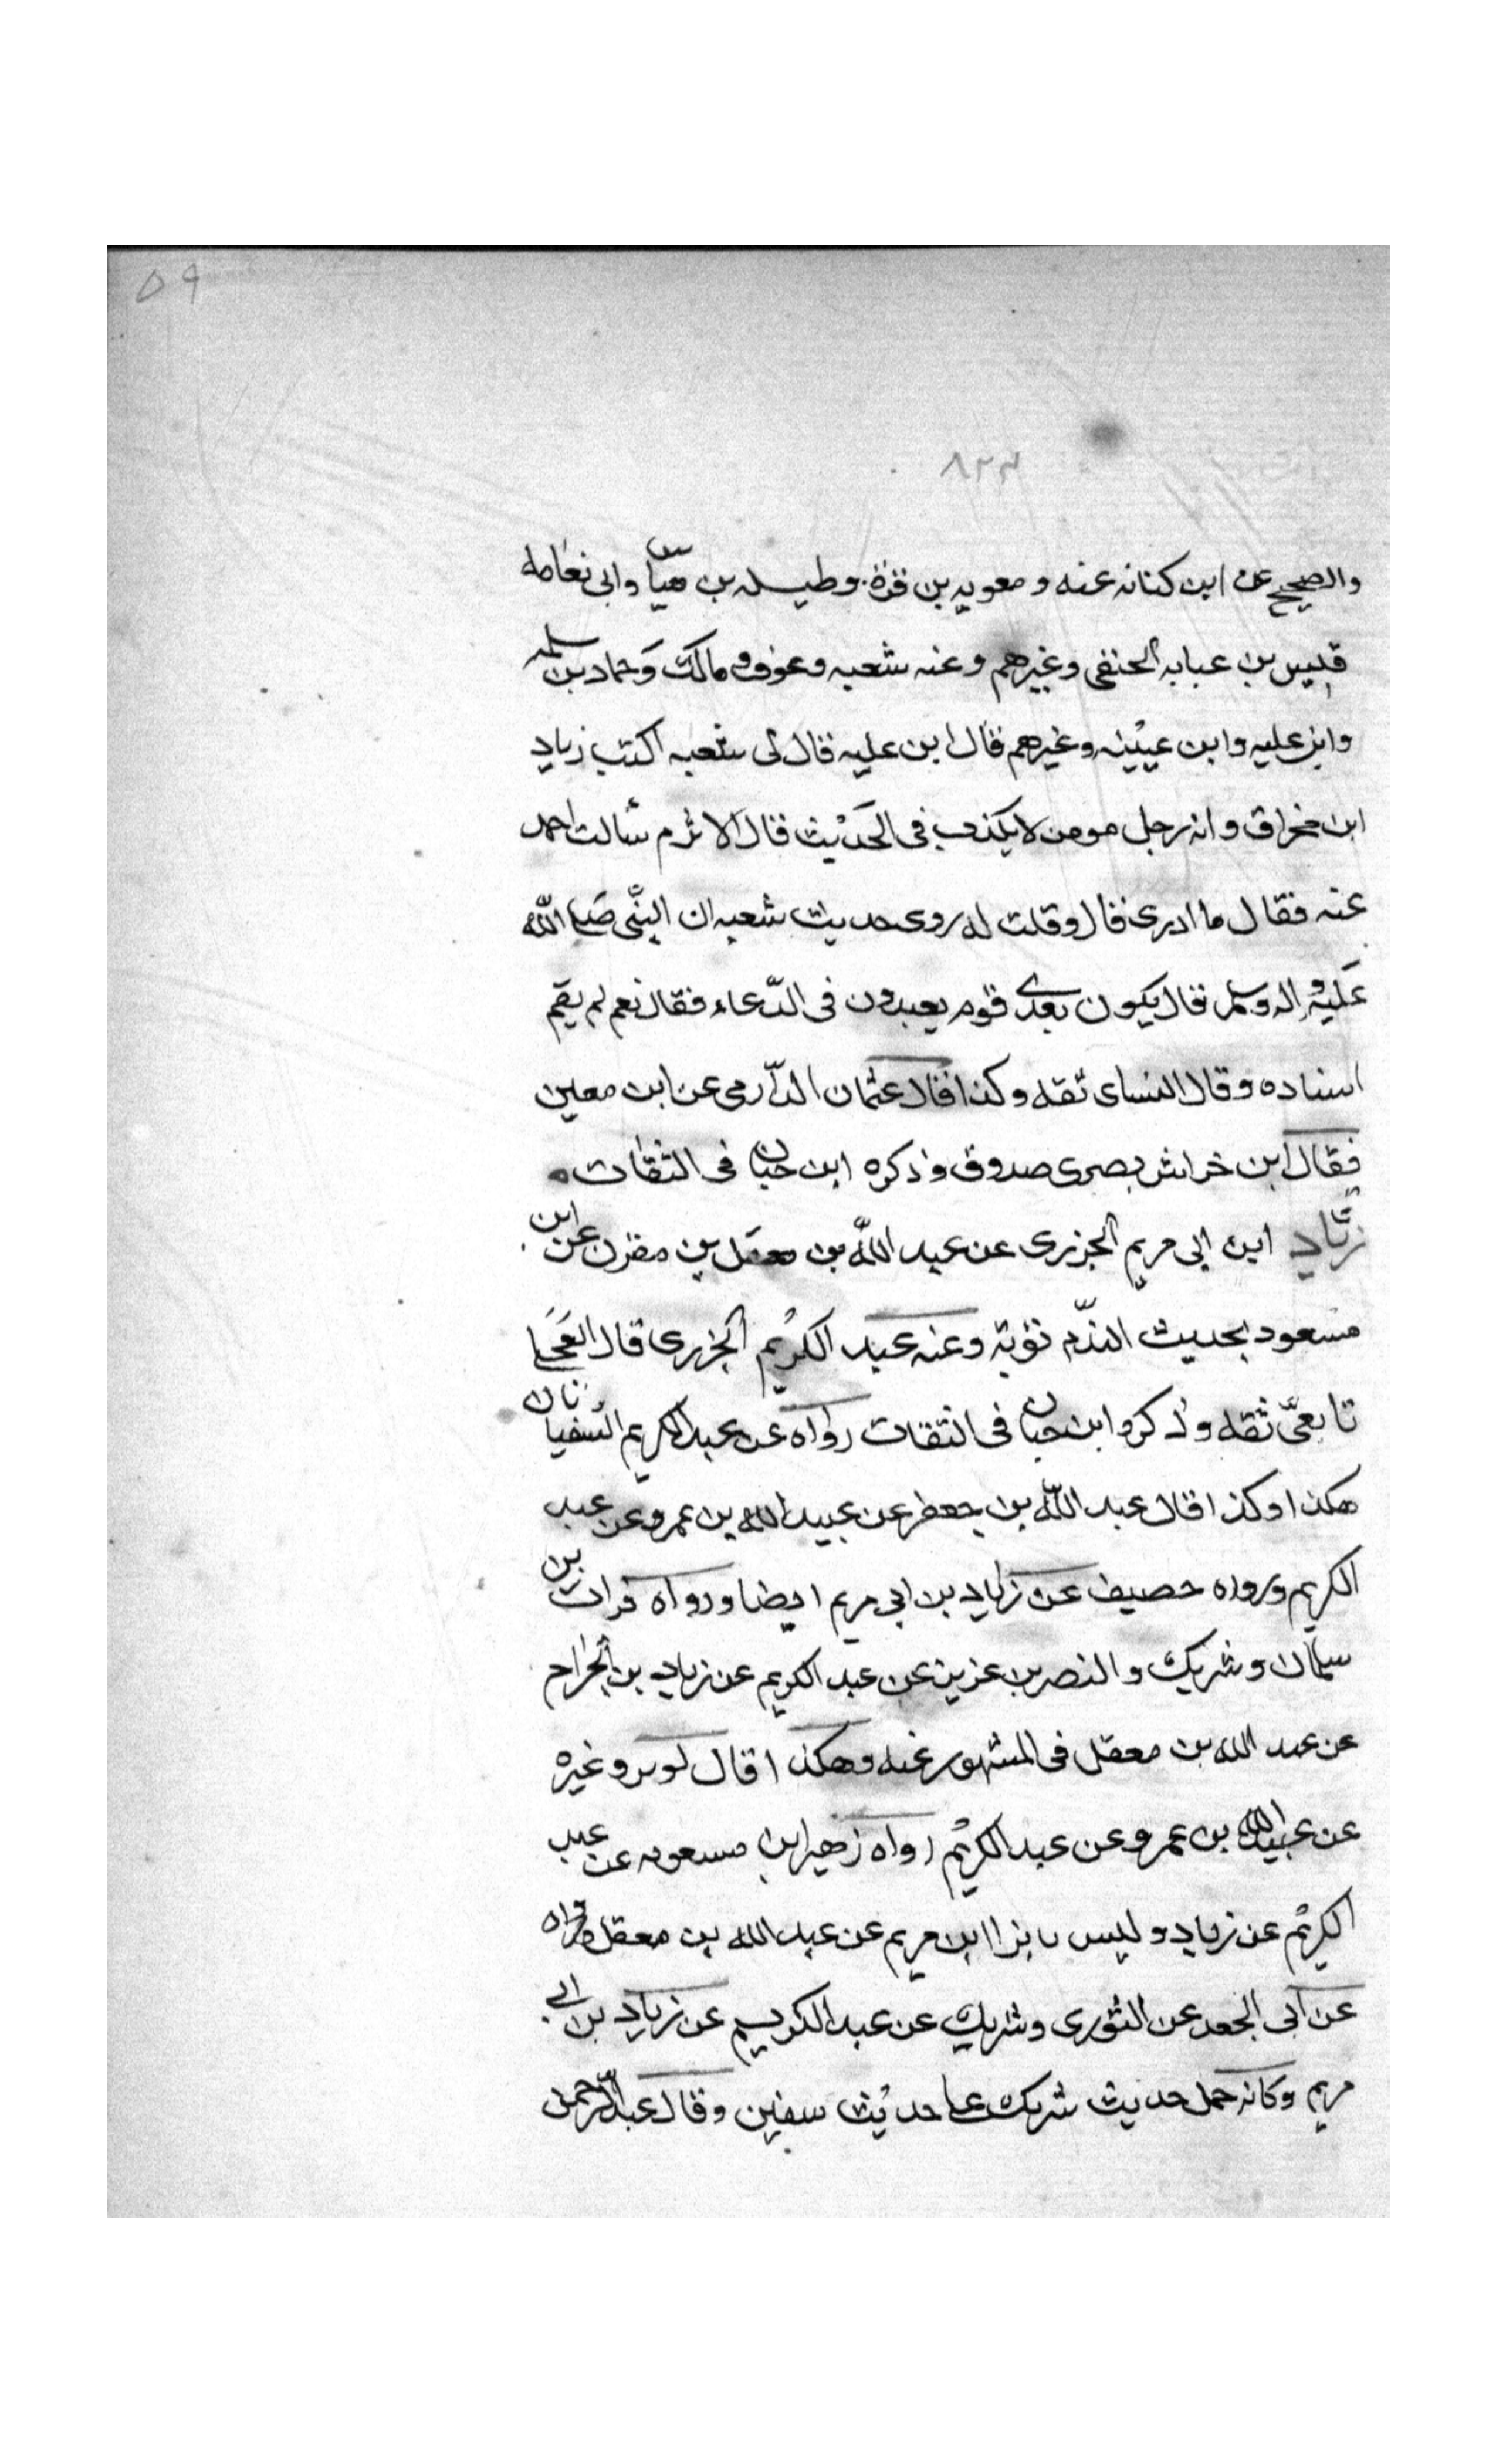 ٥٩
٨٢٣
والصحيح عن ابن كنانه عنه ومعويه بن قرة وطيسله بن ميّاس وابى نعامه
قيس بن عبايه الحنفى وغيرهم وعنه شعبه وعوف ومالك وحماد بن سلمه
وابن عليه وابن عيينه وغيرهم قال ابن عليه قال لى شعبه اكتب زياد
ابن مخراق وانه رجل مومن لا يكذب فى الحديث قال الاثرم سألت احمد
عنه فقال ما ادرى قال وقلت له روى حديث شعبه ان النبّى صلى اللّه
عليه واله وسلم قال يكون بعدى قوم يعبدون فى الدّعاء فقال نعم لم يقم
اسناده وقال النساى ثقه وكذا قال عثمان الدّارمى عن ابن معين
فقال ابن خراش بصرى صدوق وذكره ابن حبان فى الثقات
زيّاد ابن ابى مريم الجزرى عن عبد اللّه بن معقل بن مقرن عن ابن
مسعود بحديث الندّم توبة وعنه عبد الكريم الجزرى قال العجلى
تابعىّ ثقه وذكروا ابن حبان فى الثقات رواه عن عبد الكريم السفيانان
هكذا وكذا قال عبد اللّه بن جعفر عن عبيد الله بن عمرو عن عبد
الكريم ورواه خصيف عن زياد بن ابى مريم ايضا ورواه فرات بن
سلمان وشريك والنصر بن عزيز عن عبد الكريم عن زياد بن الجراح
عن عبد الله بن معقل فى المشهور عنه وهكذا قال لوين وغيره
عن عبيد الله بن عمرو عن عبد الكريم رواه زهير ابن مسعود عن عبد
الكريم عن زياد وليس بابن ابن مريم عن عبد الله بن معقل ورواه
عن ابى الجعد عن الثورى وشريك عن عبد الكريم عن زياد بن ابى
مريم وكانه حمل حديث شريك على حديث سفين وقال عبد الرّحمن